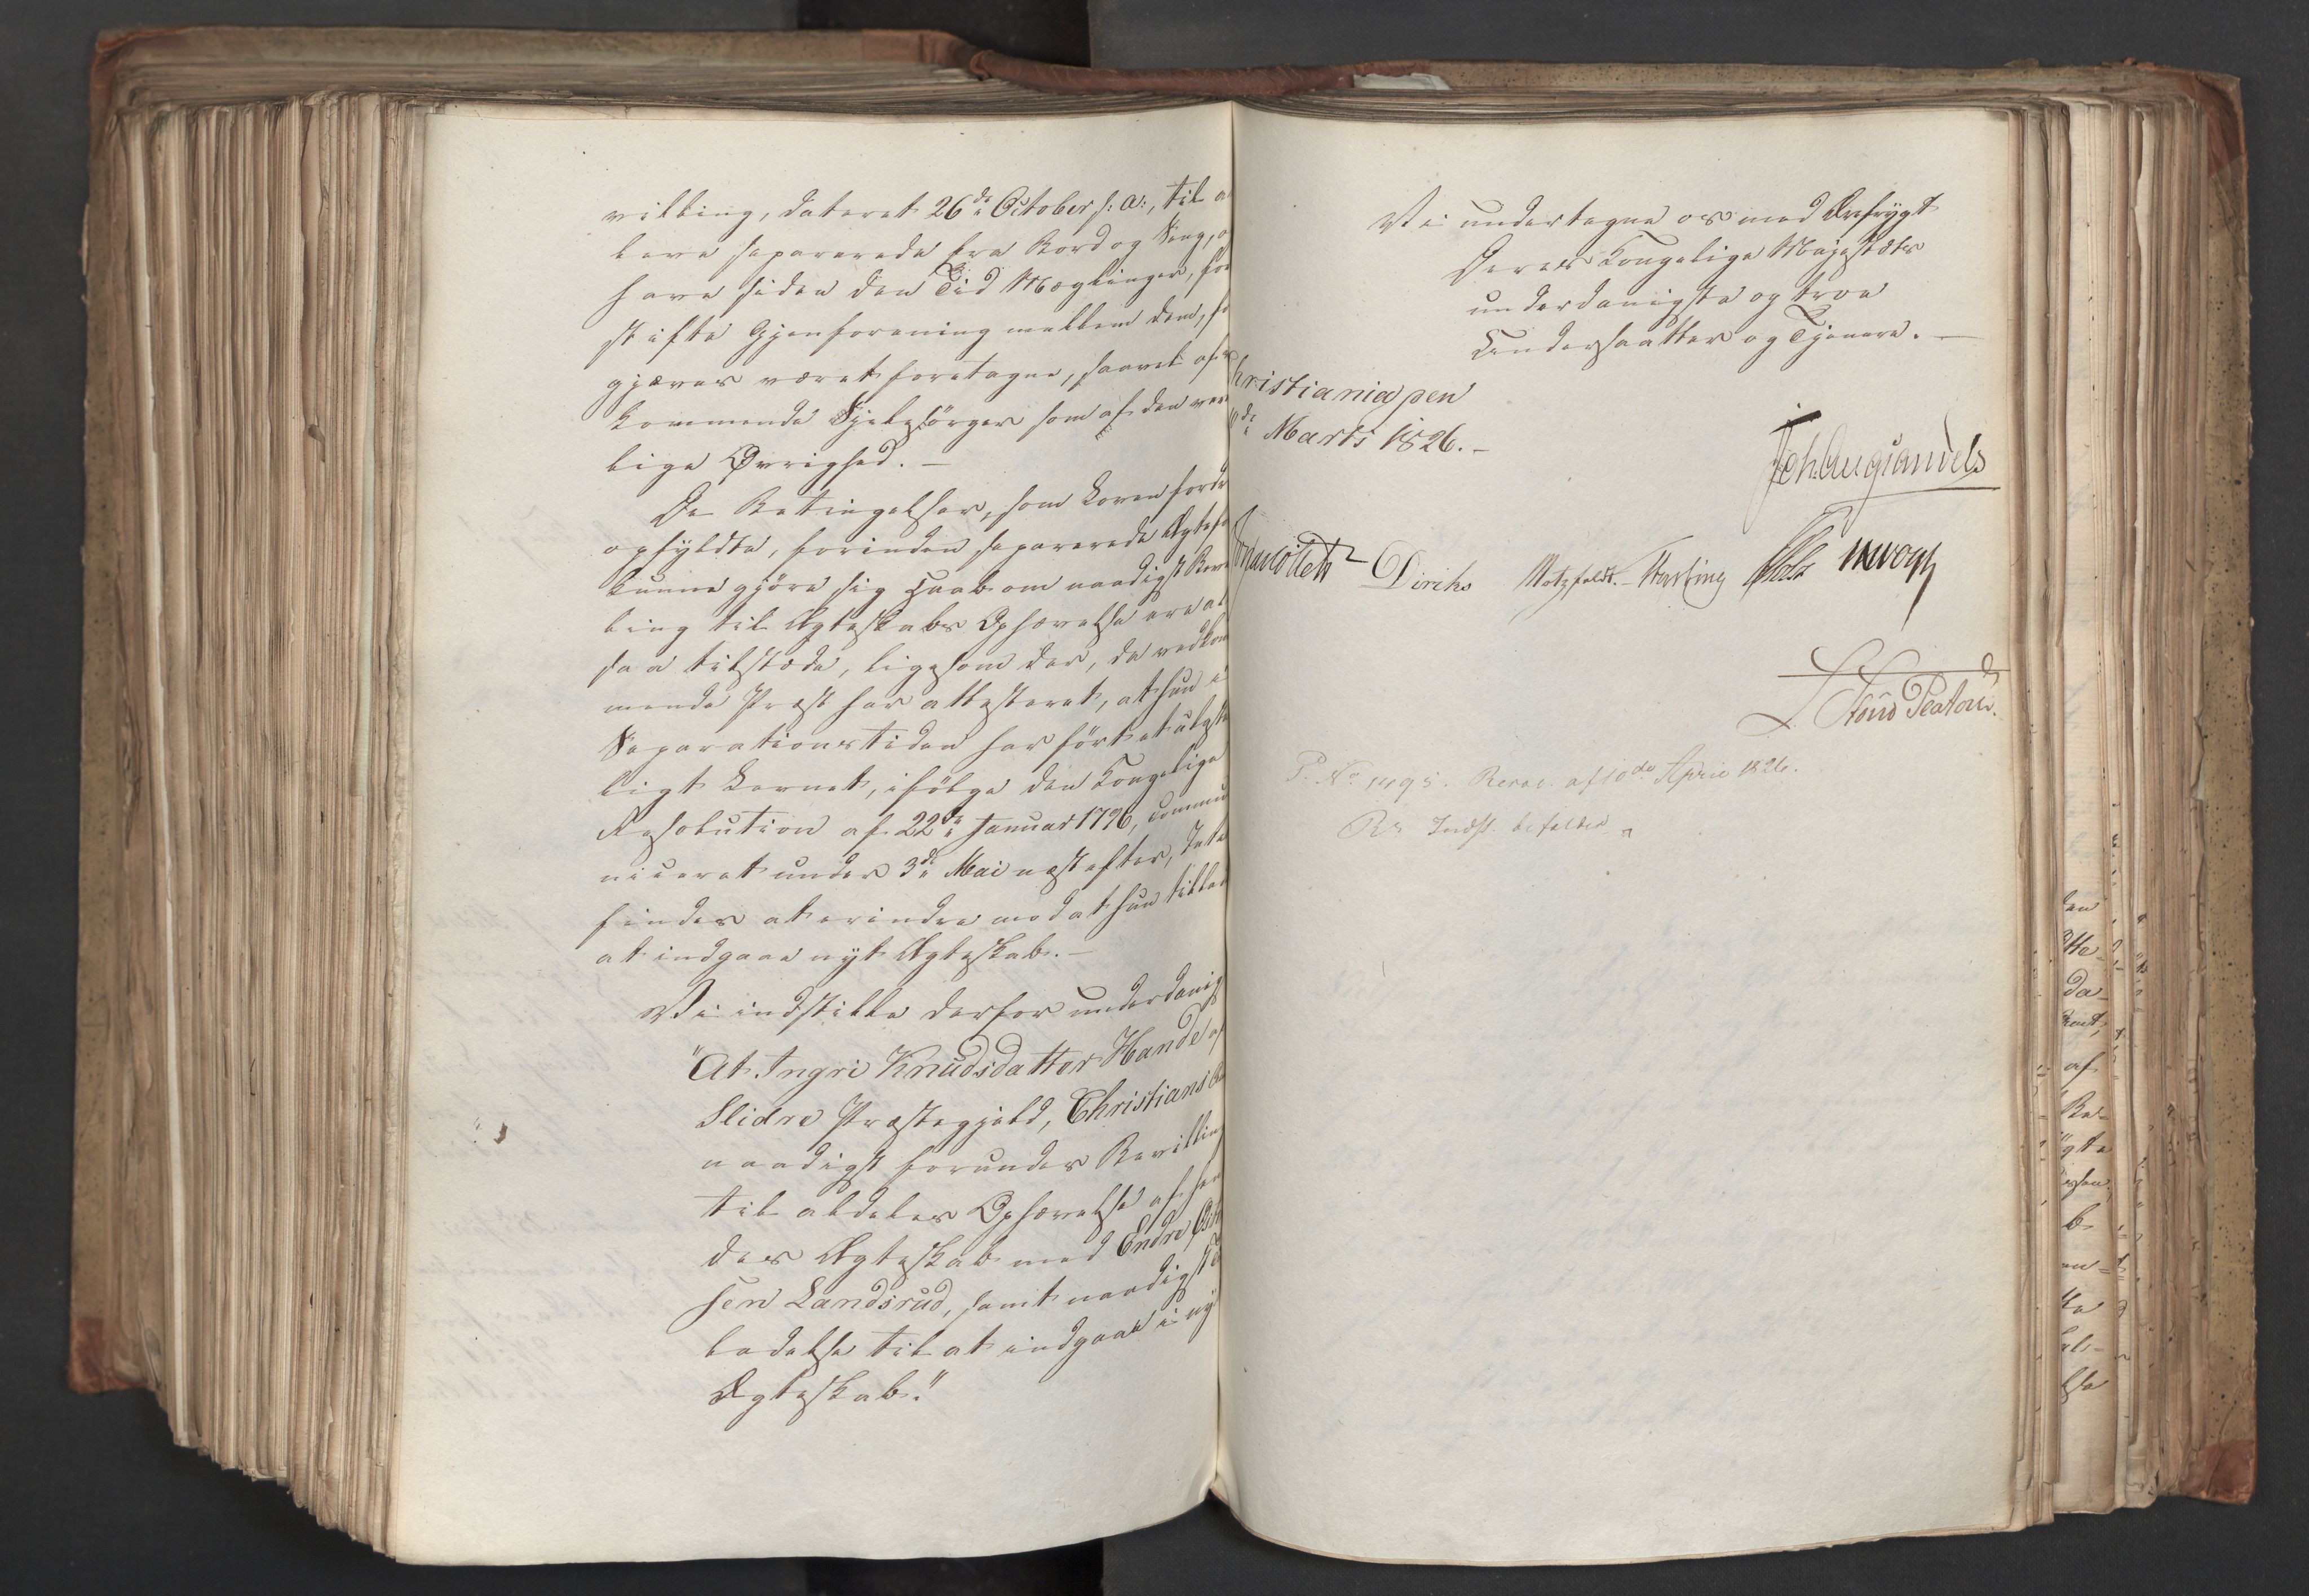 villing, dateret 26de October s: A:, til a
leve separerede fra Bord og Seng, o
have siden den Tid Mæglinger, for
stifte Gjenforening mellem dem, fr
gjæves været foretagne, saavel af v
kommende Sjelesörger som af den ver
lige Øvrighed. –
De Betingelser, som Loven fordr
opfyldte, forinden separerede Ægtefo
kunne gjöre sig Haab om naadigst Bevi
ling til Ægteskabs Ophævelse ere al
saa tilstæde, ligesom der, da vedkom
mende Præst har attesteret, at hun i
Separationstiden har fört et ulaste
ligt Levnet, ifölge den Kongelige
Resolution af 22de Januar 1796, commu
niceret under 3de Mai næstefter, Intet
findes at erindre mod at hun tillad
at indgaae nyt Ægteskab. –
Vi indstille derfor underdanig
"At Ingri Knudsdatter Hande af
Slidre Præstegjeld, Christians A
naadigst forundes Bevilling
til aldeles Ophævelse af hen
des Ægteskab med Endre
sen Landsrud, samt naadigst
ladelse til at indgaae i ny
Ægteskab."
Vi undertegne os med Ærefrygt
Deres Kongelige Majestæts
underdanigste og troe
Undersaatter og Tjenere. –
hristiania den
de Marts 1826. –
Joh. Aug. Sandels
Collett Diriks Motzfeldt. Fasting Holst
P. No 1495. Resol. af 10de April 1826.
Rs Indst. bifaldes